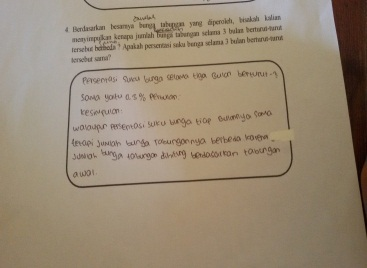 4. Berdasarkan besarnya bunga tabungan yang diperoleh, bisakah kalian
menyimpulkan kenapa jumlah bunga tabungan selama 3 bulan berturut-turut
tersebut berbeda? Apakah persentasi suku bunga selama 3 bulan berturut-turut
tersebut sama?
Persentasi suku bunga selama tiga bulan berturut-t
sama yaitu 0.5%
kesimpulan:
walaupun persentasi suku bunga tiap bulannya sama
tetapi jumlah bunga tabungannya berbeda karena
jumlah bunga tabungan dihitung berdasarkan tabungan
awal.